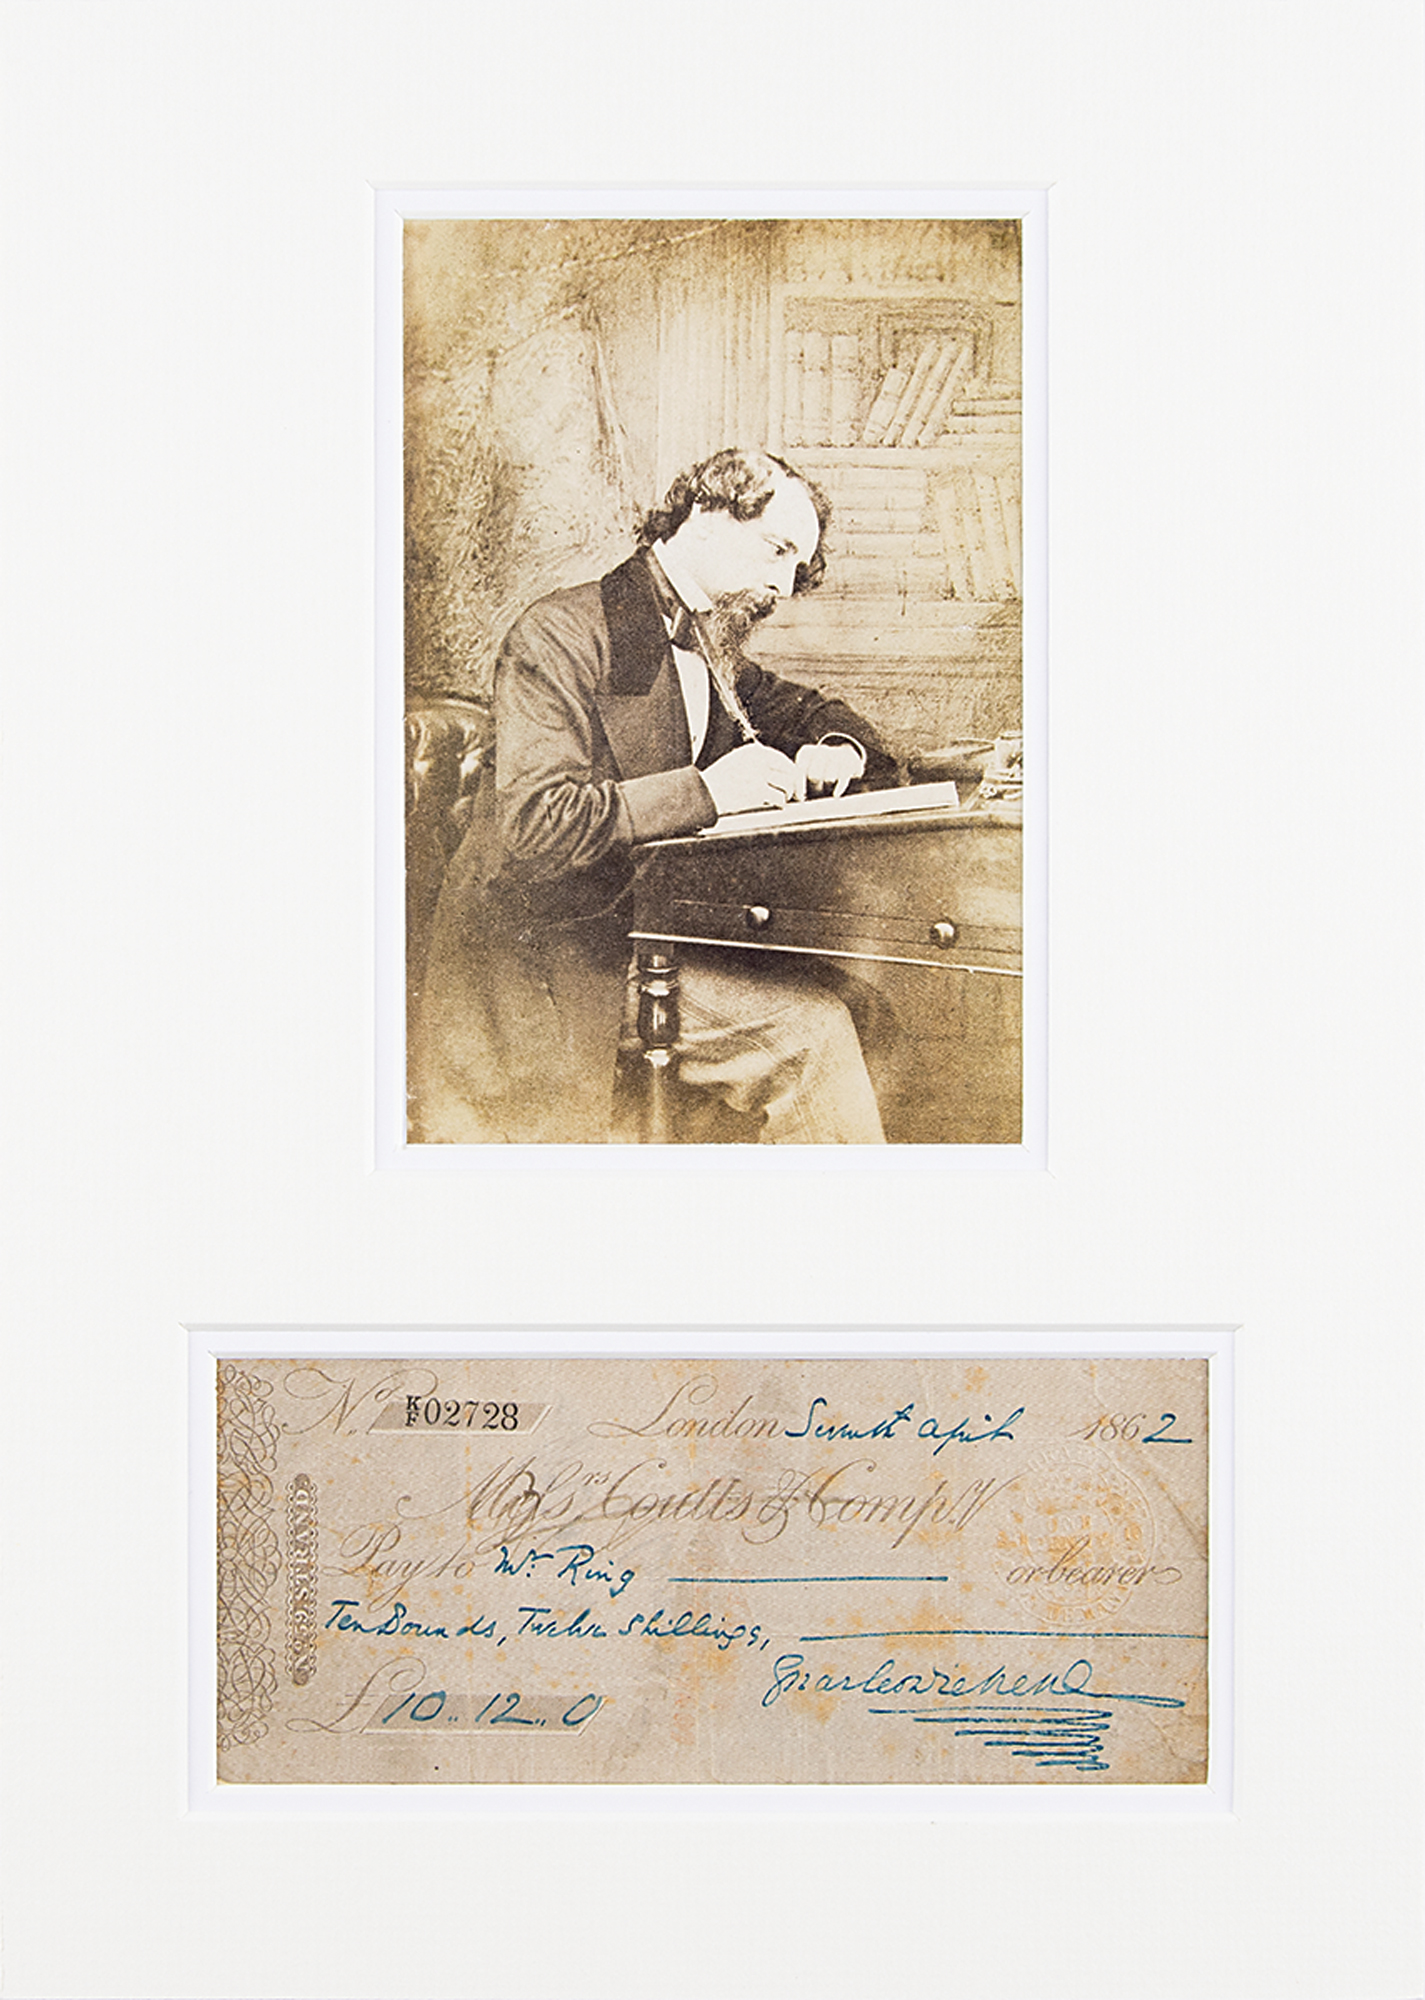 No. K/F 02728 London Seventh April 1862
Messrs Coutts & Compy
Pay to Mr. Ring or bearer
Ten Pounds, Twelve Shillings,
Charles Dickens
£10..12..0
No. 59 STRAND.